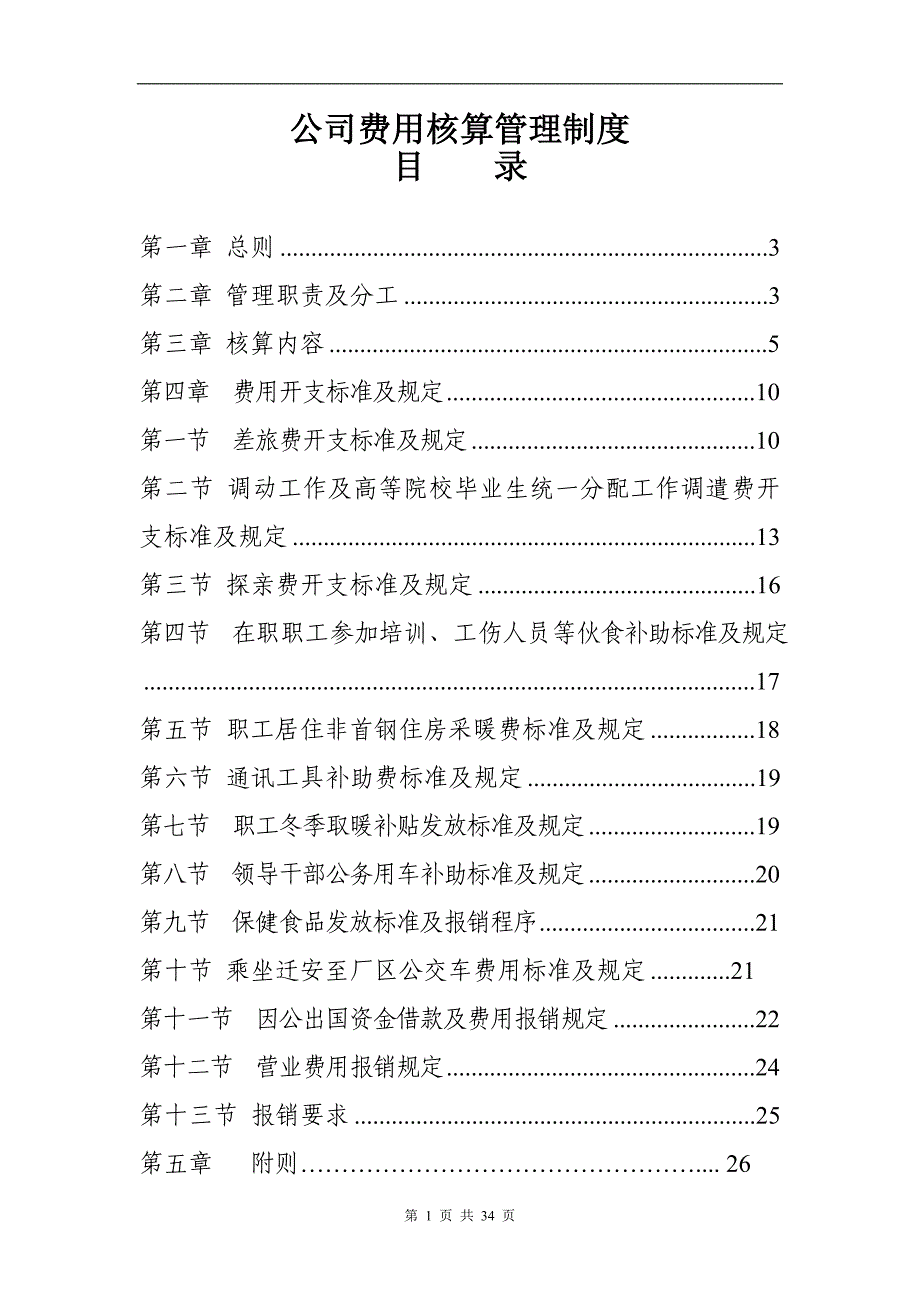 公司费用核算管理制度
目 录
第一章 总则................................................................................3
第二章 管理职责及分工..........................................................3
第三章 核算内容........................................................................5
第四章 费用开支标准及规定...................................................10
第一节 差旅费开支标准及规定...............................................10
第二节 调动工作及高等院校毕业生统一分配工作调遣费开
支标准及规定............................................................................13
第三节 探亲费开支标准及规定..............................................16
第四节 在职职工参加培训、工伤人员等伙食补助标准及规定
....................................................................................................17
第五节 职工居住非首钢住房采暖费标准及规定.................18
第六节 通讯工具补助费标准及规定.....................................19
第七节 职工冬季取暖补贴发放标准及规定...........................19
第八节 领导干部公务用车补助标准及规定...........................20
第九节 保健食品发放标准及报销程序...................................21
第十节 乘坐迁安至厂区公交车费用标准及规定.............21
第十一节 因公出国资金借款及费用报销规定.......................22
第十二节 营业费用报销规定...................................................24
第十三节 报销要求..................................................................25
第五章 附则…………………………………………….... 26
第 1 页 共 34 页